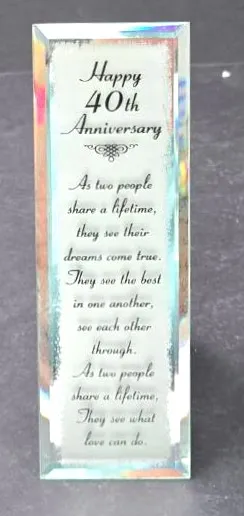 Happy
40th
Anniversary
As two people
share a lifetime,
they see their
dreams come true.
They see the best
in one another,
see each other
through.
As two people
share a lifetime,
They see what
love can do.